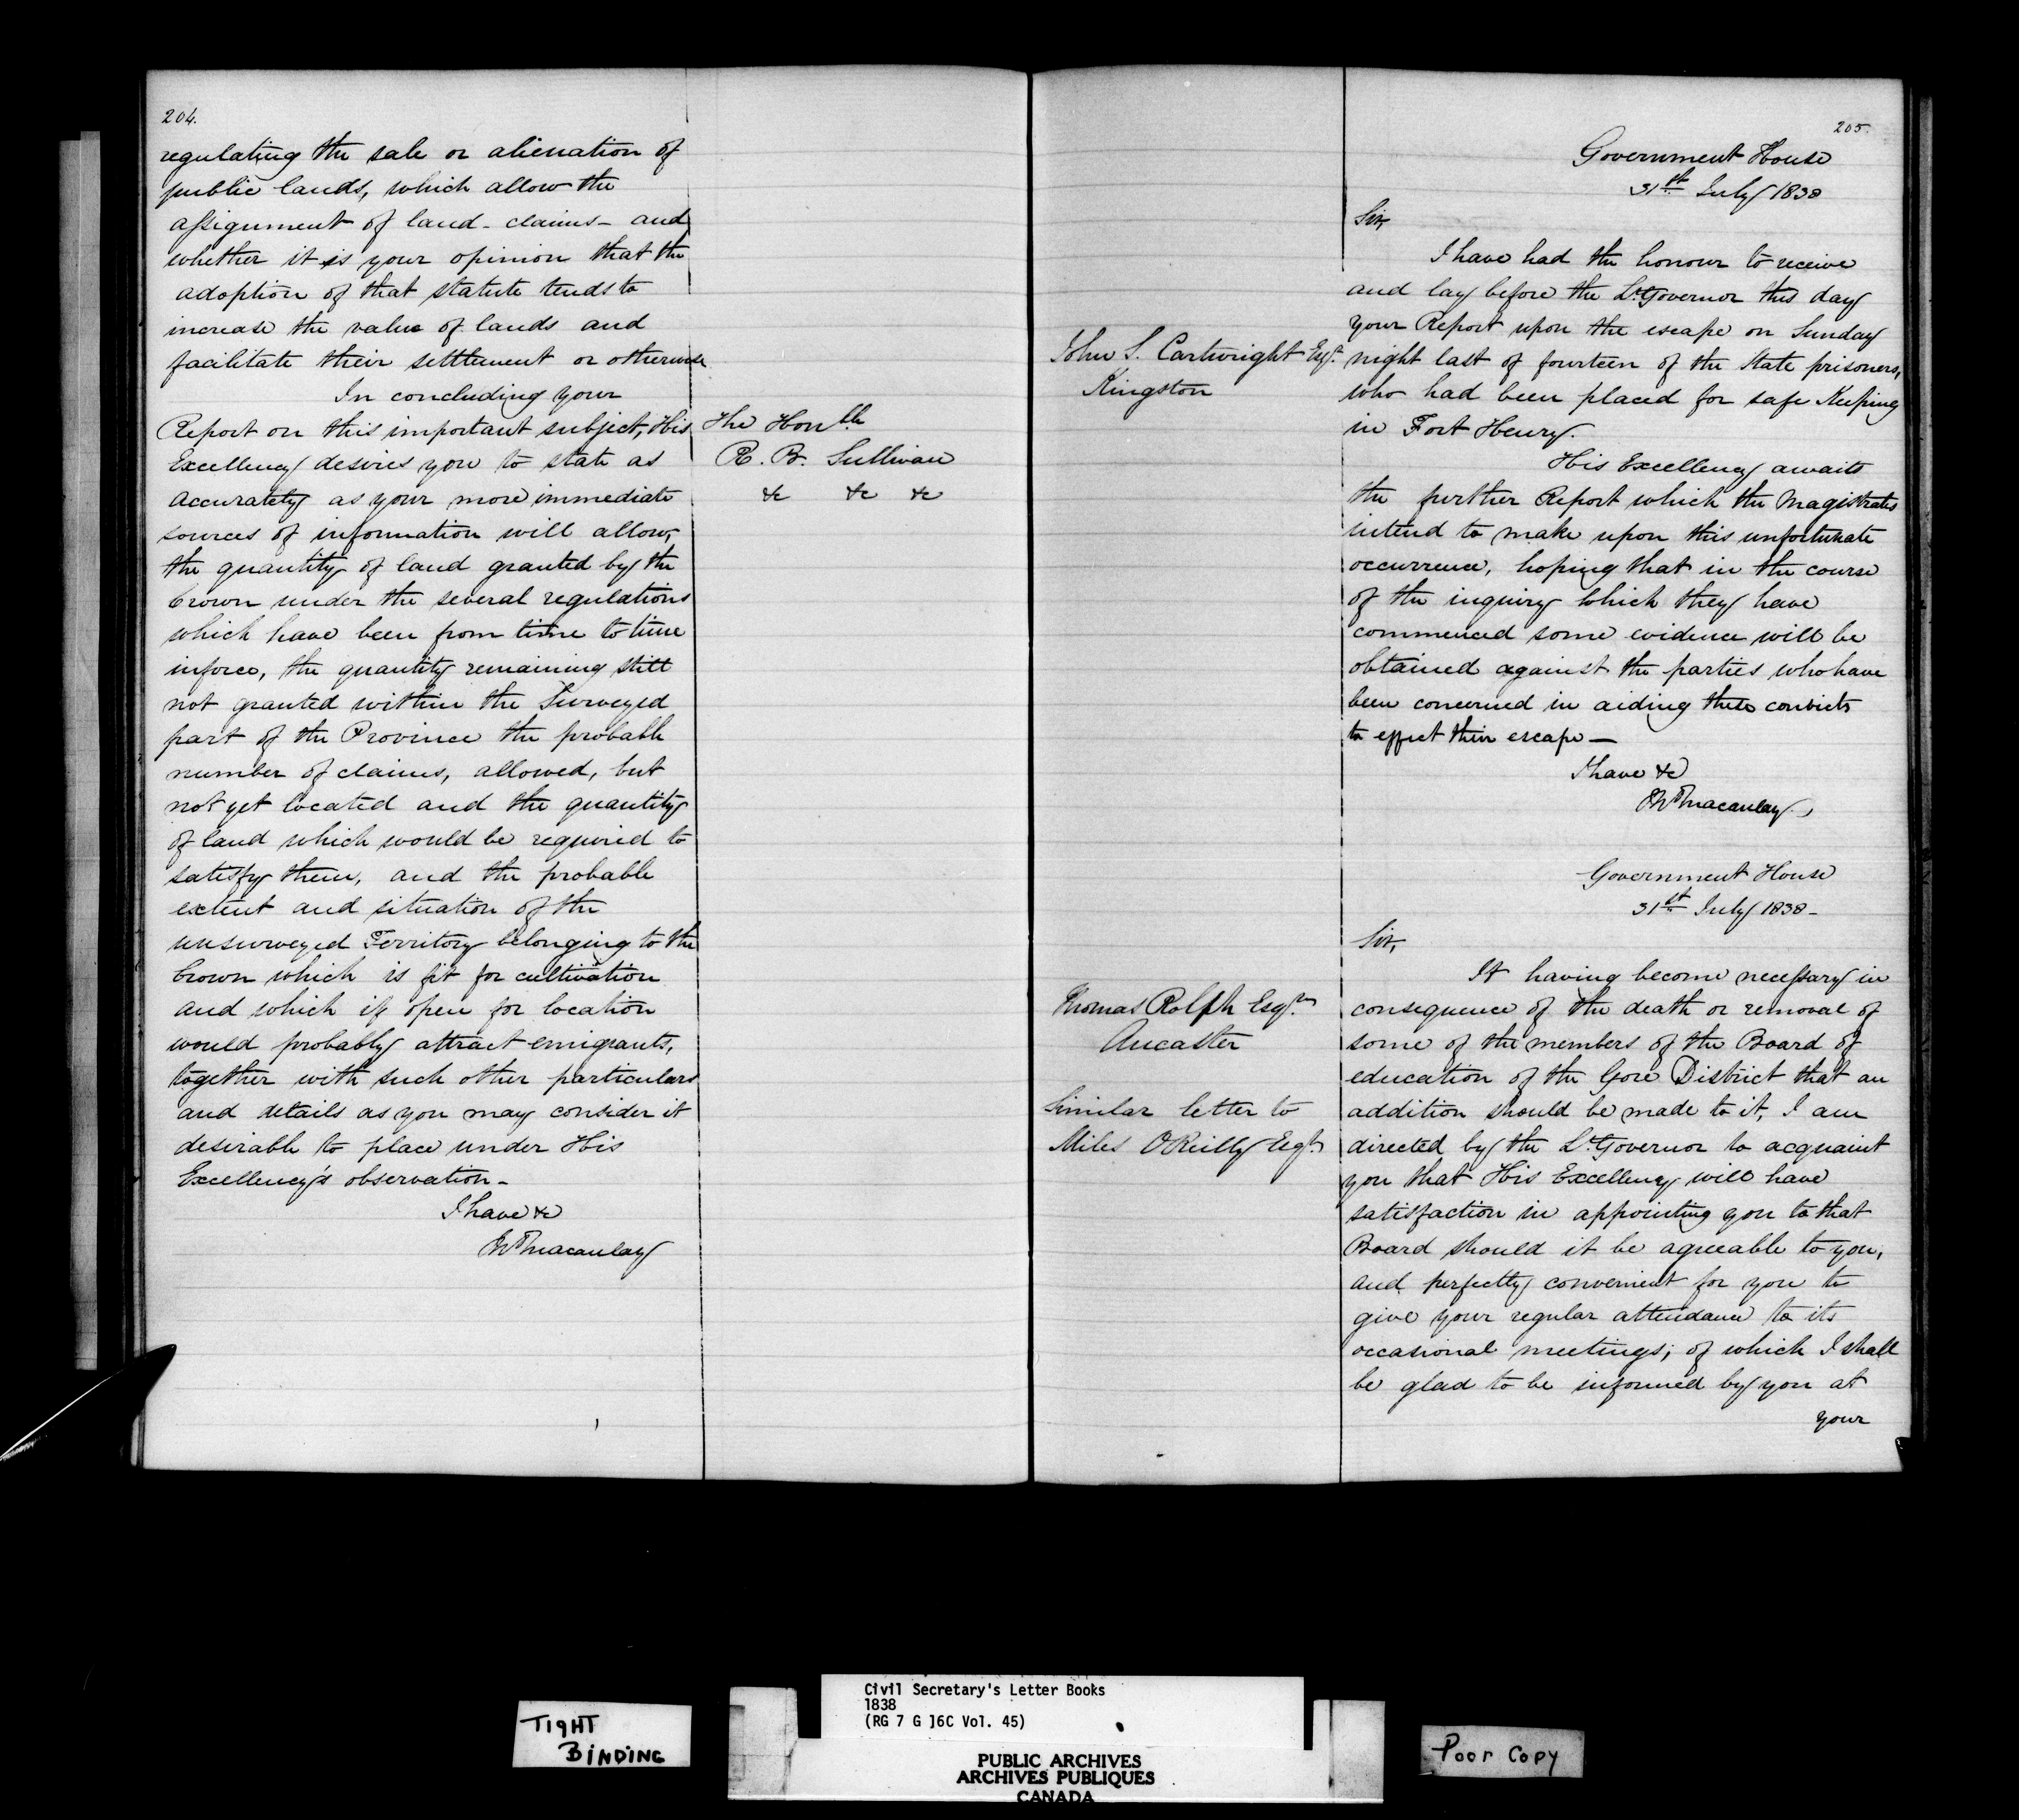 204.
regulating the sale or alienation of
public lands, which allow the
assignment of land - claims - and
whether it is your opinion that the
adoption of that statute tends to
increase the value of lands and
facilitate their settlement or otherwise
In concluding your
Report on this important subject, His
Excellency desires you to state as
accurately as your more immediate
sources of information will allow,
the quantity of land granted by the
Crown under the several regulations
which have been from time to time
inforce, the quantity remaining still
not granted within the Surveyed
part of the Province the probable
number of claims, allowed, but
not yet located and the quantity
of land which would be required to
satisfy them, and the probable
extent and situation of the
unsurveyed Territory belonging to the
Crown which is fit for cultivation
and which if open for location
would probably attract emigrants,
together with such other particulars
and details as you may consider it
desirable to place under His
Excellency's observation -
I have &c
Jn Macaulay
The Honble
R. B. Sullivan
&c &c &c
205.
Government House
31st July 1838
Sir,
I have had the honour to receive
and lay before the Lt Governor this day
your Report upon the escape on Sunday
night last of fourteen of the State prisoners,
who had been placed for safe Keeping
in Fort Henry.
John S. Cartwright Esqr.
Kingston
His Excellency awaits
the further Report which the Magistrates
intend to make upon this unfortunate
occurrence, hoping that in the course
of the inquiry which they have
commenced some evidence will be
obtained against the parties who have
been concerned in aiding these convicts
to effect their escape —
I have &c
Jn Macaulay
Government House
31st July 1838 -
Sir,
It having become necessary in
consequence of the death or removal of
some of the members of the Board of
education of the Gore District that an
addition should be made to it, I am
directed by the Lt Governor to acquaint
you that His Excellency will have
satisfaction in appointing you to that
Board should it be agreeable to you,
and perfectly convenient for you to
give your regular attendance to its
occasional meetings; of which I shall
be glad to be informed by you at
your
Thomas Rolph Esqr.
Ancaster
Similar letter to
Miles O'Reilly Esqr.
TIGHT
BINDING
Civil Secretary's Letter Books
1838
(RG 7 G 16C Vol. 45)
PUBLIC ARCHIVES
ARCHIVES PUBLIQUES
CANADA
Poor Copy